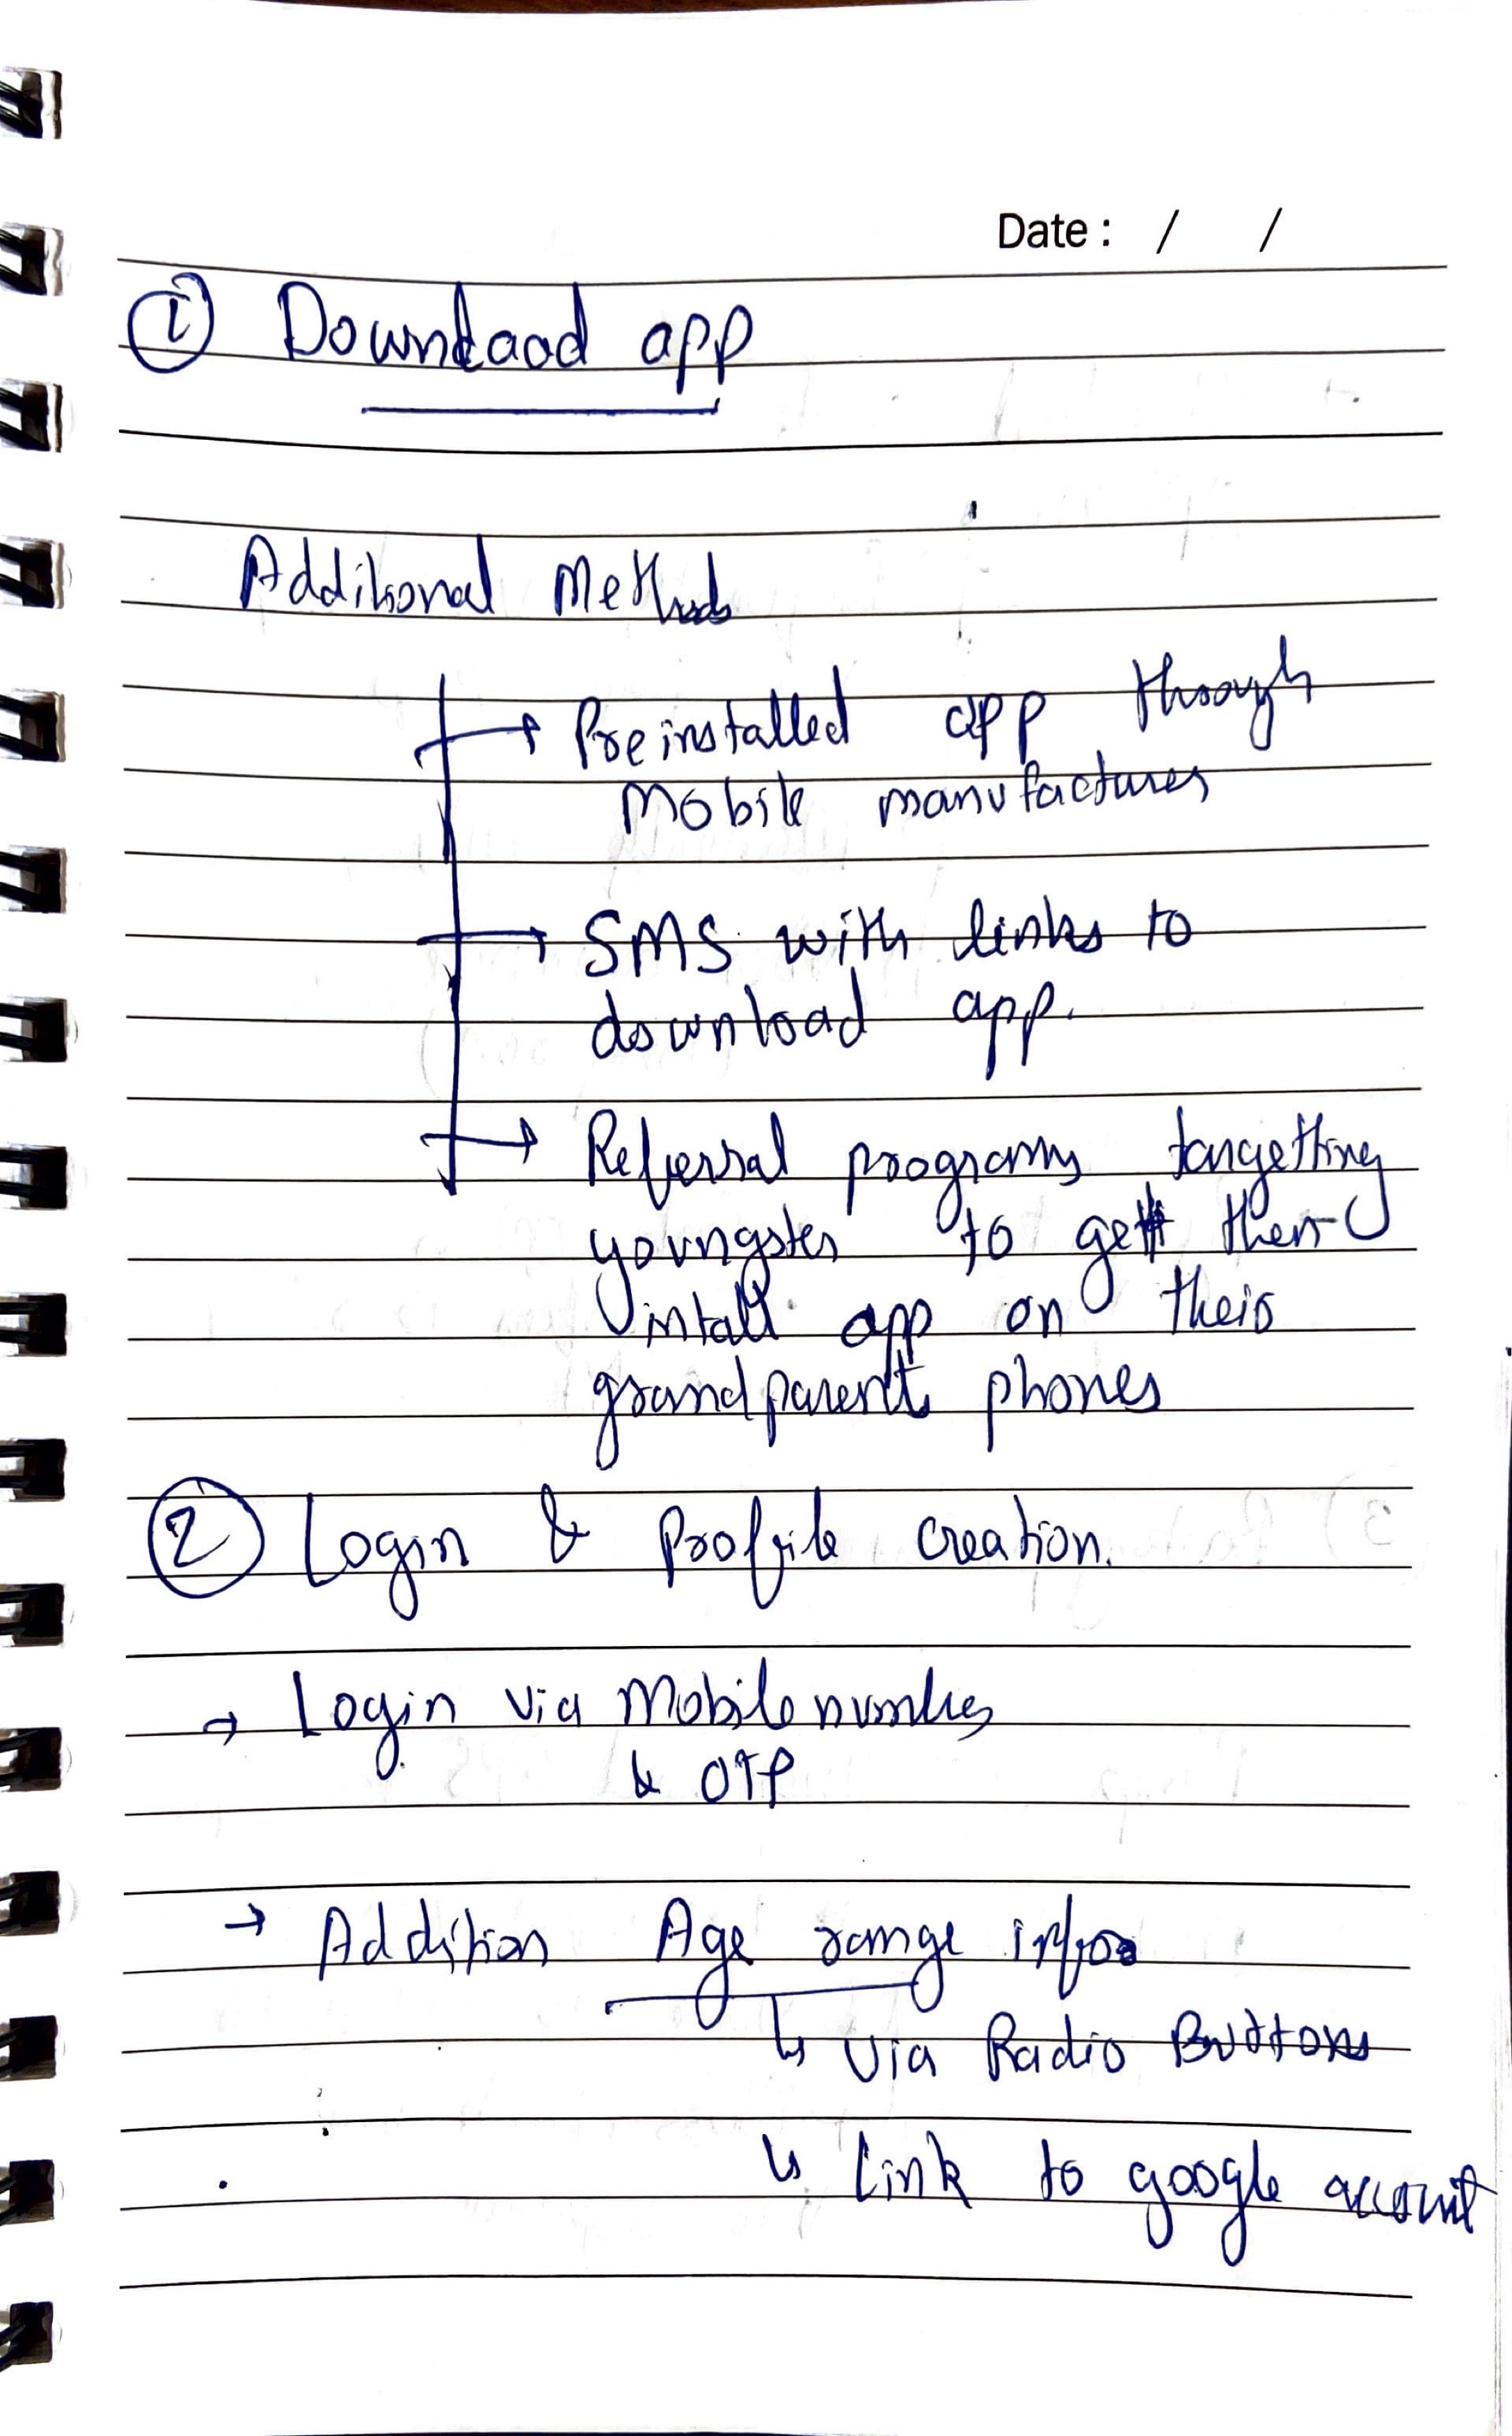 Date : / /
① Download app
Additional Methods
→ Preinstalled app through
Mobile manufactures
→ SMS with links to
download app.
→ Referral programs targetting
youngster to get them
intall app on their
grandparents phones
② Login & Profile creation.
→ Login via Mobile number
& OTP
→ Addition Age range info
↳ via Radio Buttons
↳ link to google account